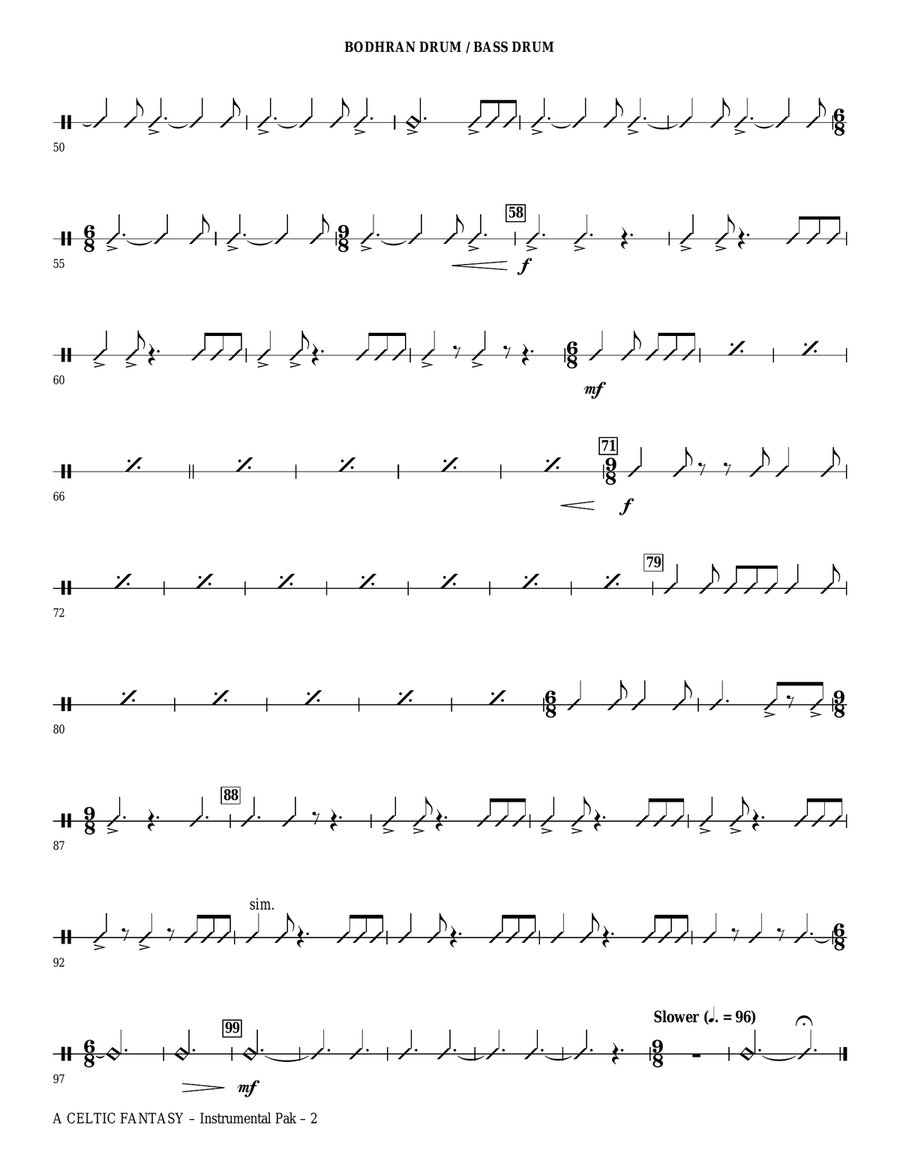 BODHRAN DRUM / BASS DRUM
6
8
50
6
8
9
8
58
f
55
6
8
mf
60
71
9
8
f
66
79
72
6
8
9
8
80
9
8
88
87
sim.
6
8
92
6
8
99
mf
Slower (♩. = 96)
9
8
97
A CELTIC FANTASY – Instrumental Pak – 2